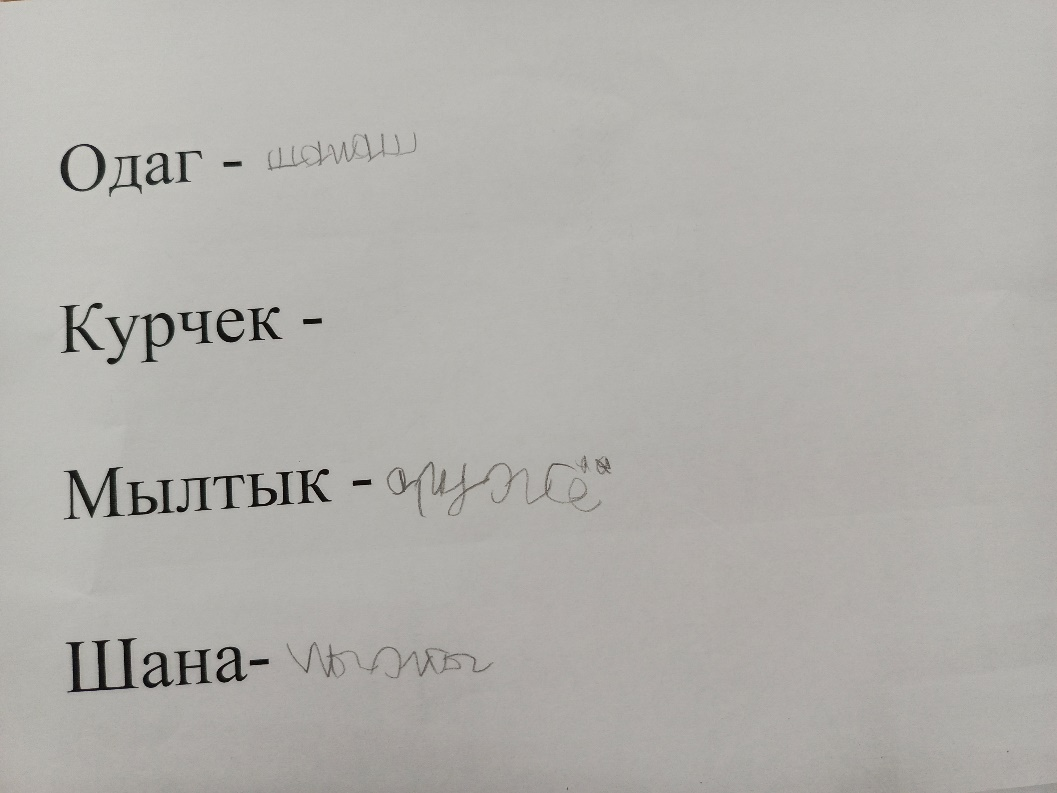 Одаг - шалаш
Курчек -
Мылтык - оружё
Шана- лыжы